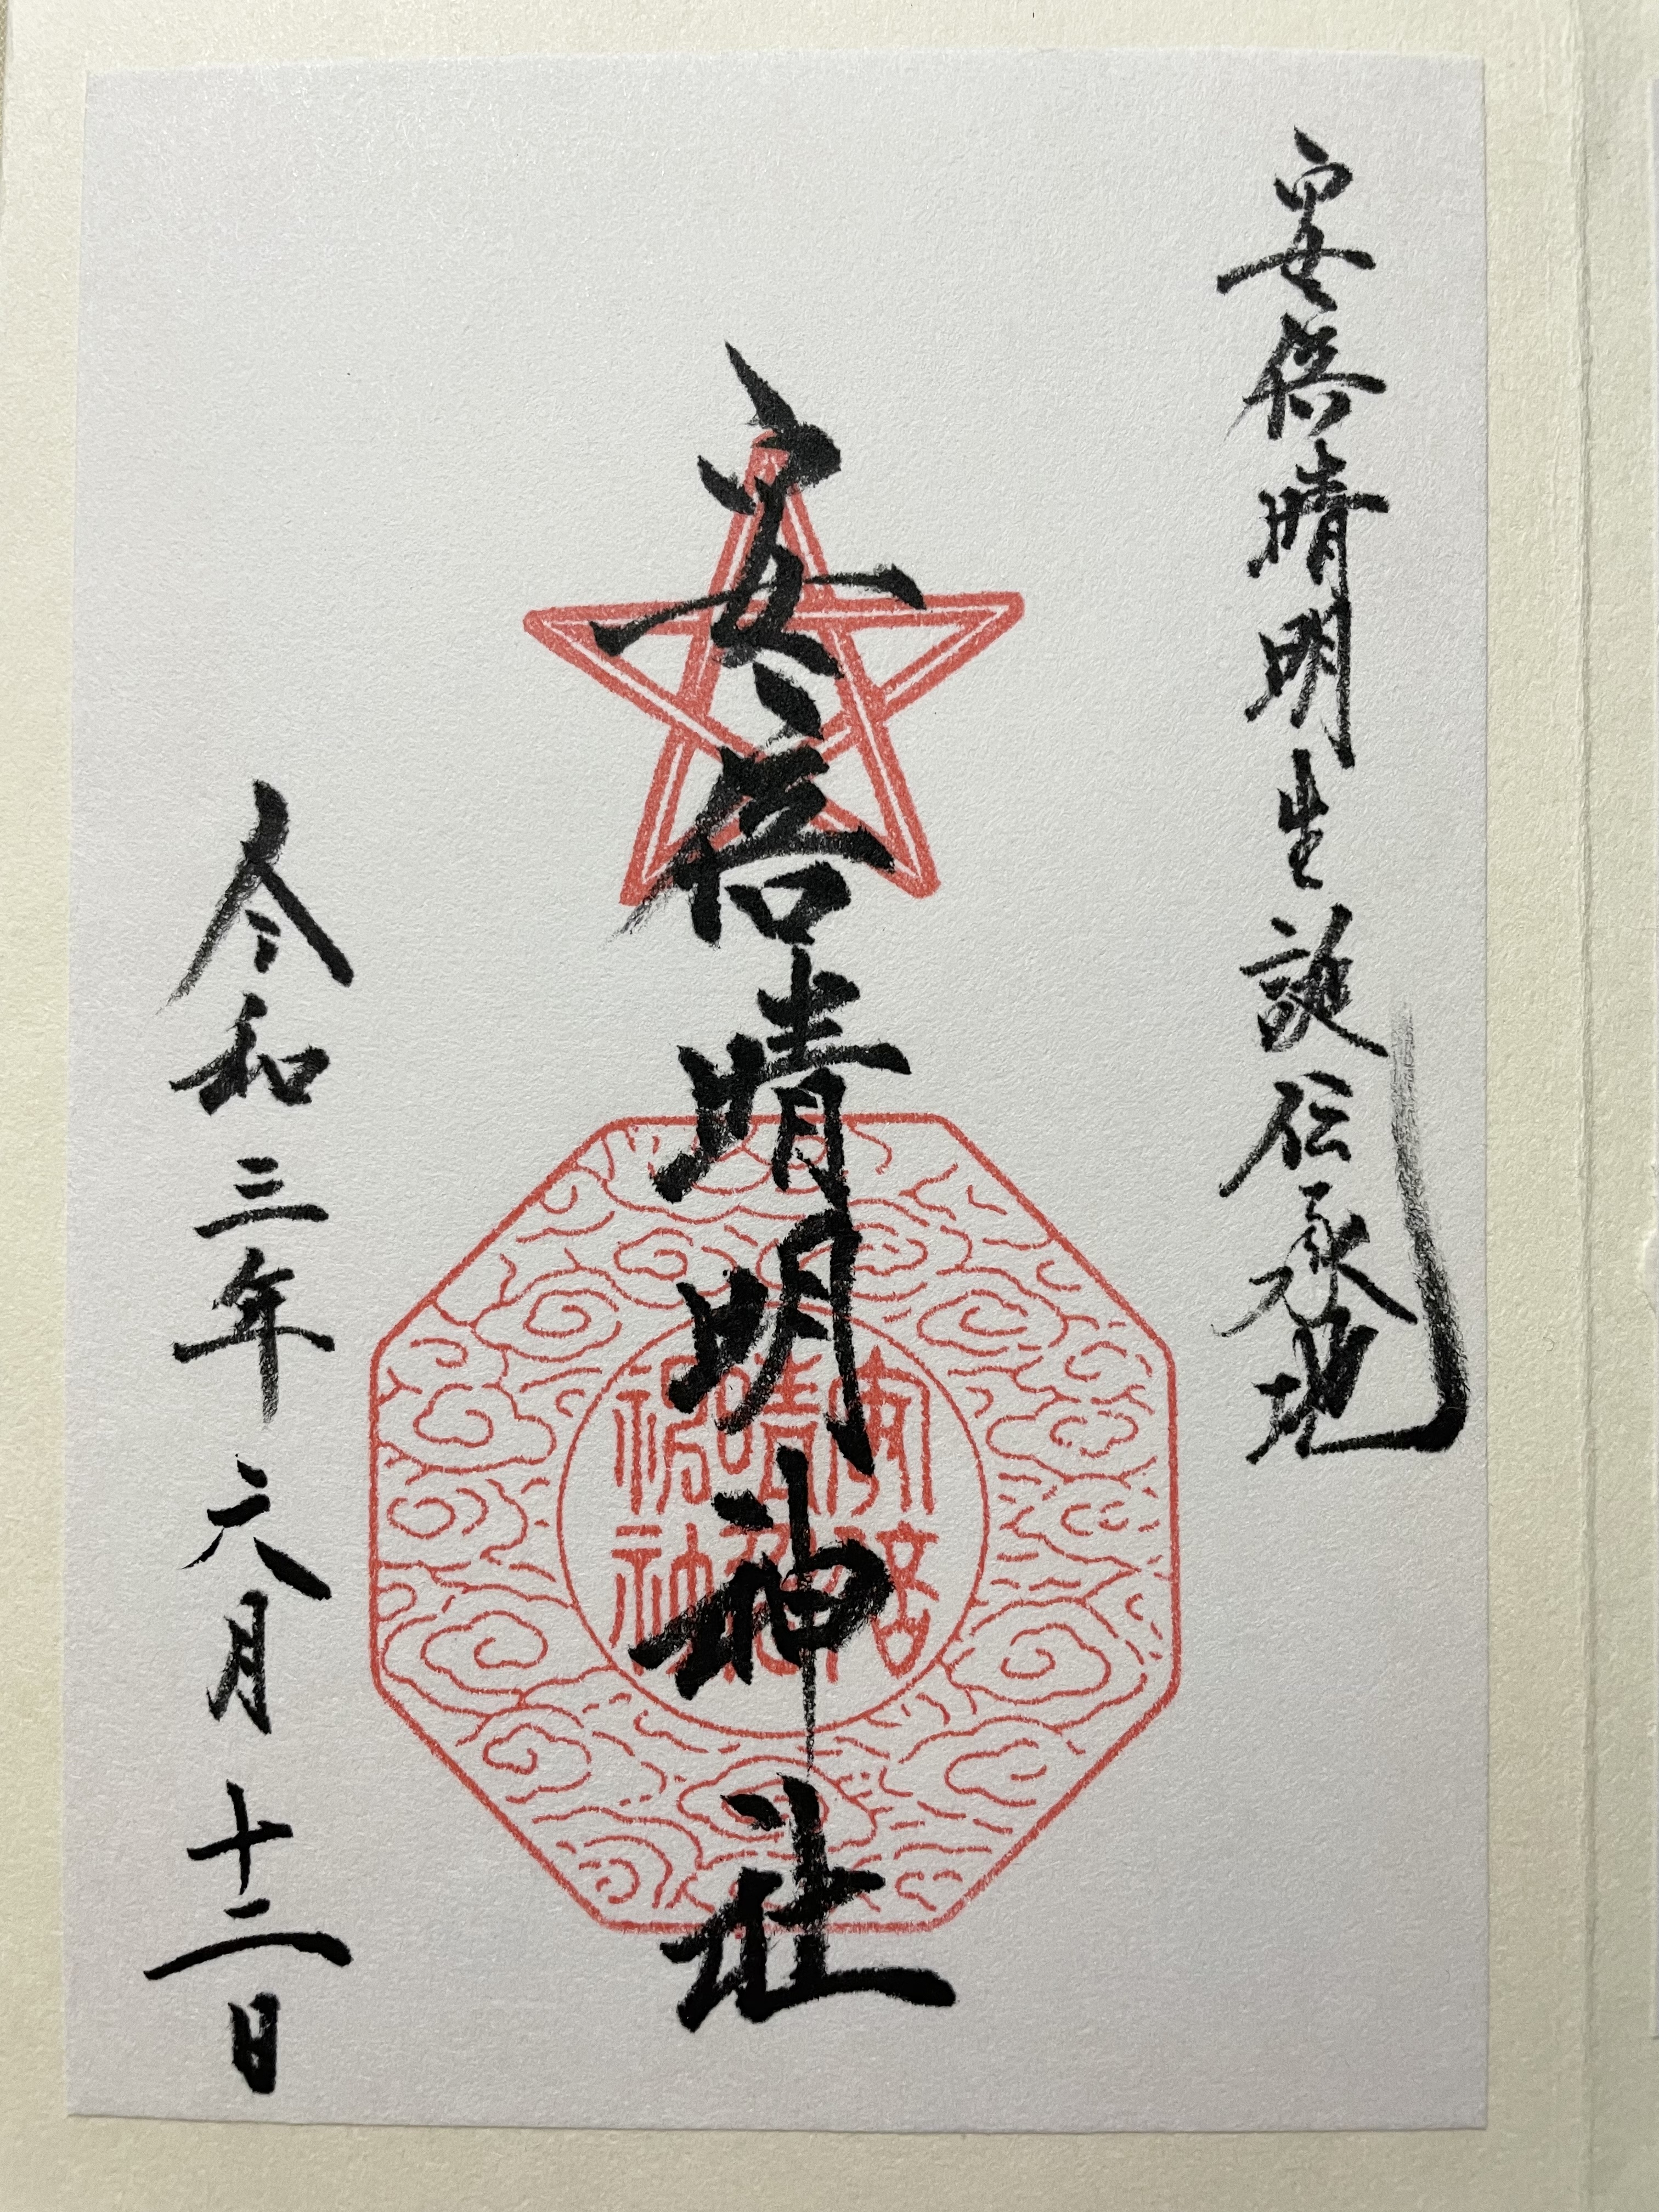 安倍晴明生誕伝承地
安倍晴明神社
令和三年六月十二日